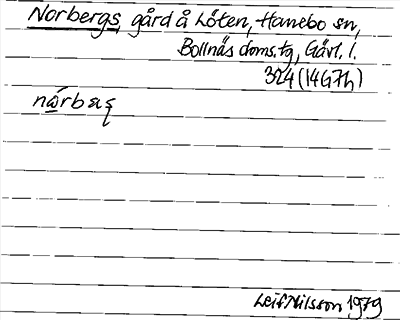 Norbergs, gård å Löten, Hanebo sn,
Bollnäs doms.tg, Gävl. l.
324 (14G7h)
Leif Nilsson 1979